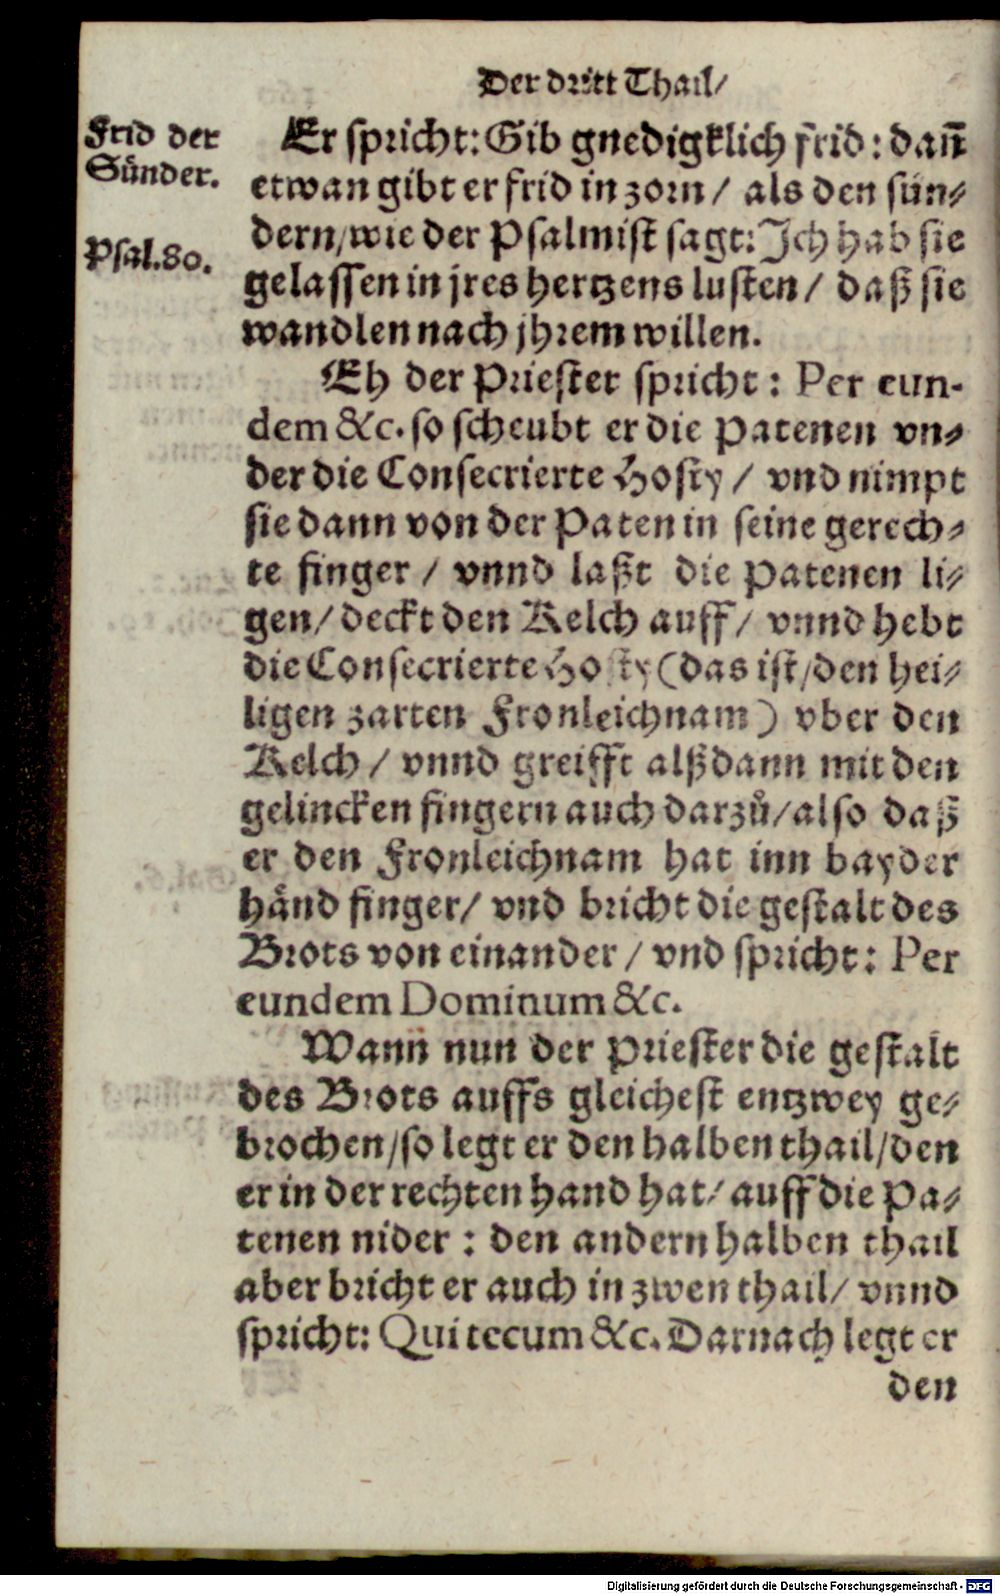 Der dritt Thail/
Frid der
Sünder.
Psal.80.
Er spricht: Gib gnedigklich frid: dañ
etwan gibt er frid in zorn/ als den sün⸗
dern/wie der Psalmist sagt: Jch hab sie
gelassen in jres hertzens lusten/ daß sie
wandlen nach jhrem willen.
Eh der Priester spricht: Per eun-
dem &c. so scheubt er die Patenen vn⸗
der die Consecrierte Hosty/ vnd nimpt
sie dann von der Paten in seine gerech⸗
te finger/ vnnd laßt die Patenen li⸗
gen/ deckt den Kelch auff/ vnnd hebt
die Consecrierte Hosty (das ist/den hei⸗
ligen zarten Fronleichnam) vber den
Kelch/ vnnd greifft alßdann mit den
gelincken fingern auch darzů/also daß
er den Fronleichnam hat inn bayder
händ finger/ vnd bricht die gestalt des
Brots von einander/ vnd spricht: Per
eundem Dominum &c.
Wann nun der Priester die gestalt
des Brots auffs gleichest entzwey ge⸗
brochen/so legt er den halben thail/den
er in der rechten hand hat/ auff die Pa⸗
tenen nider: den andern halben thail
aber bricht er auch in zwen thail/ vnnd
spricht: Qui tecum &c. Darnach legt er
den
Digitalisierung gefördert durch die Deutsche Forschungsgemeinschaft - DFG